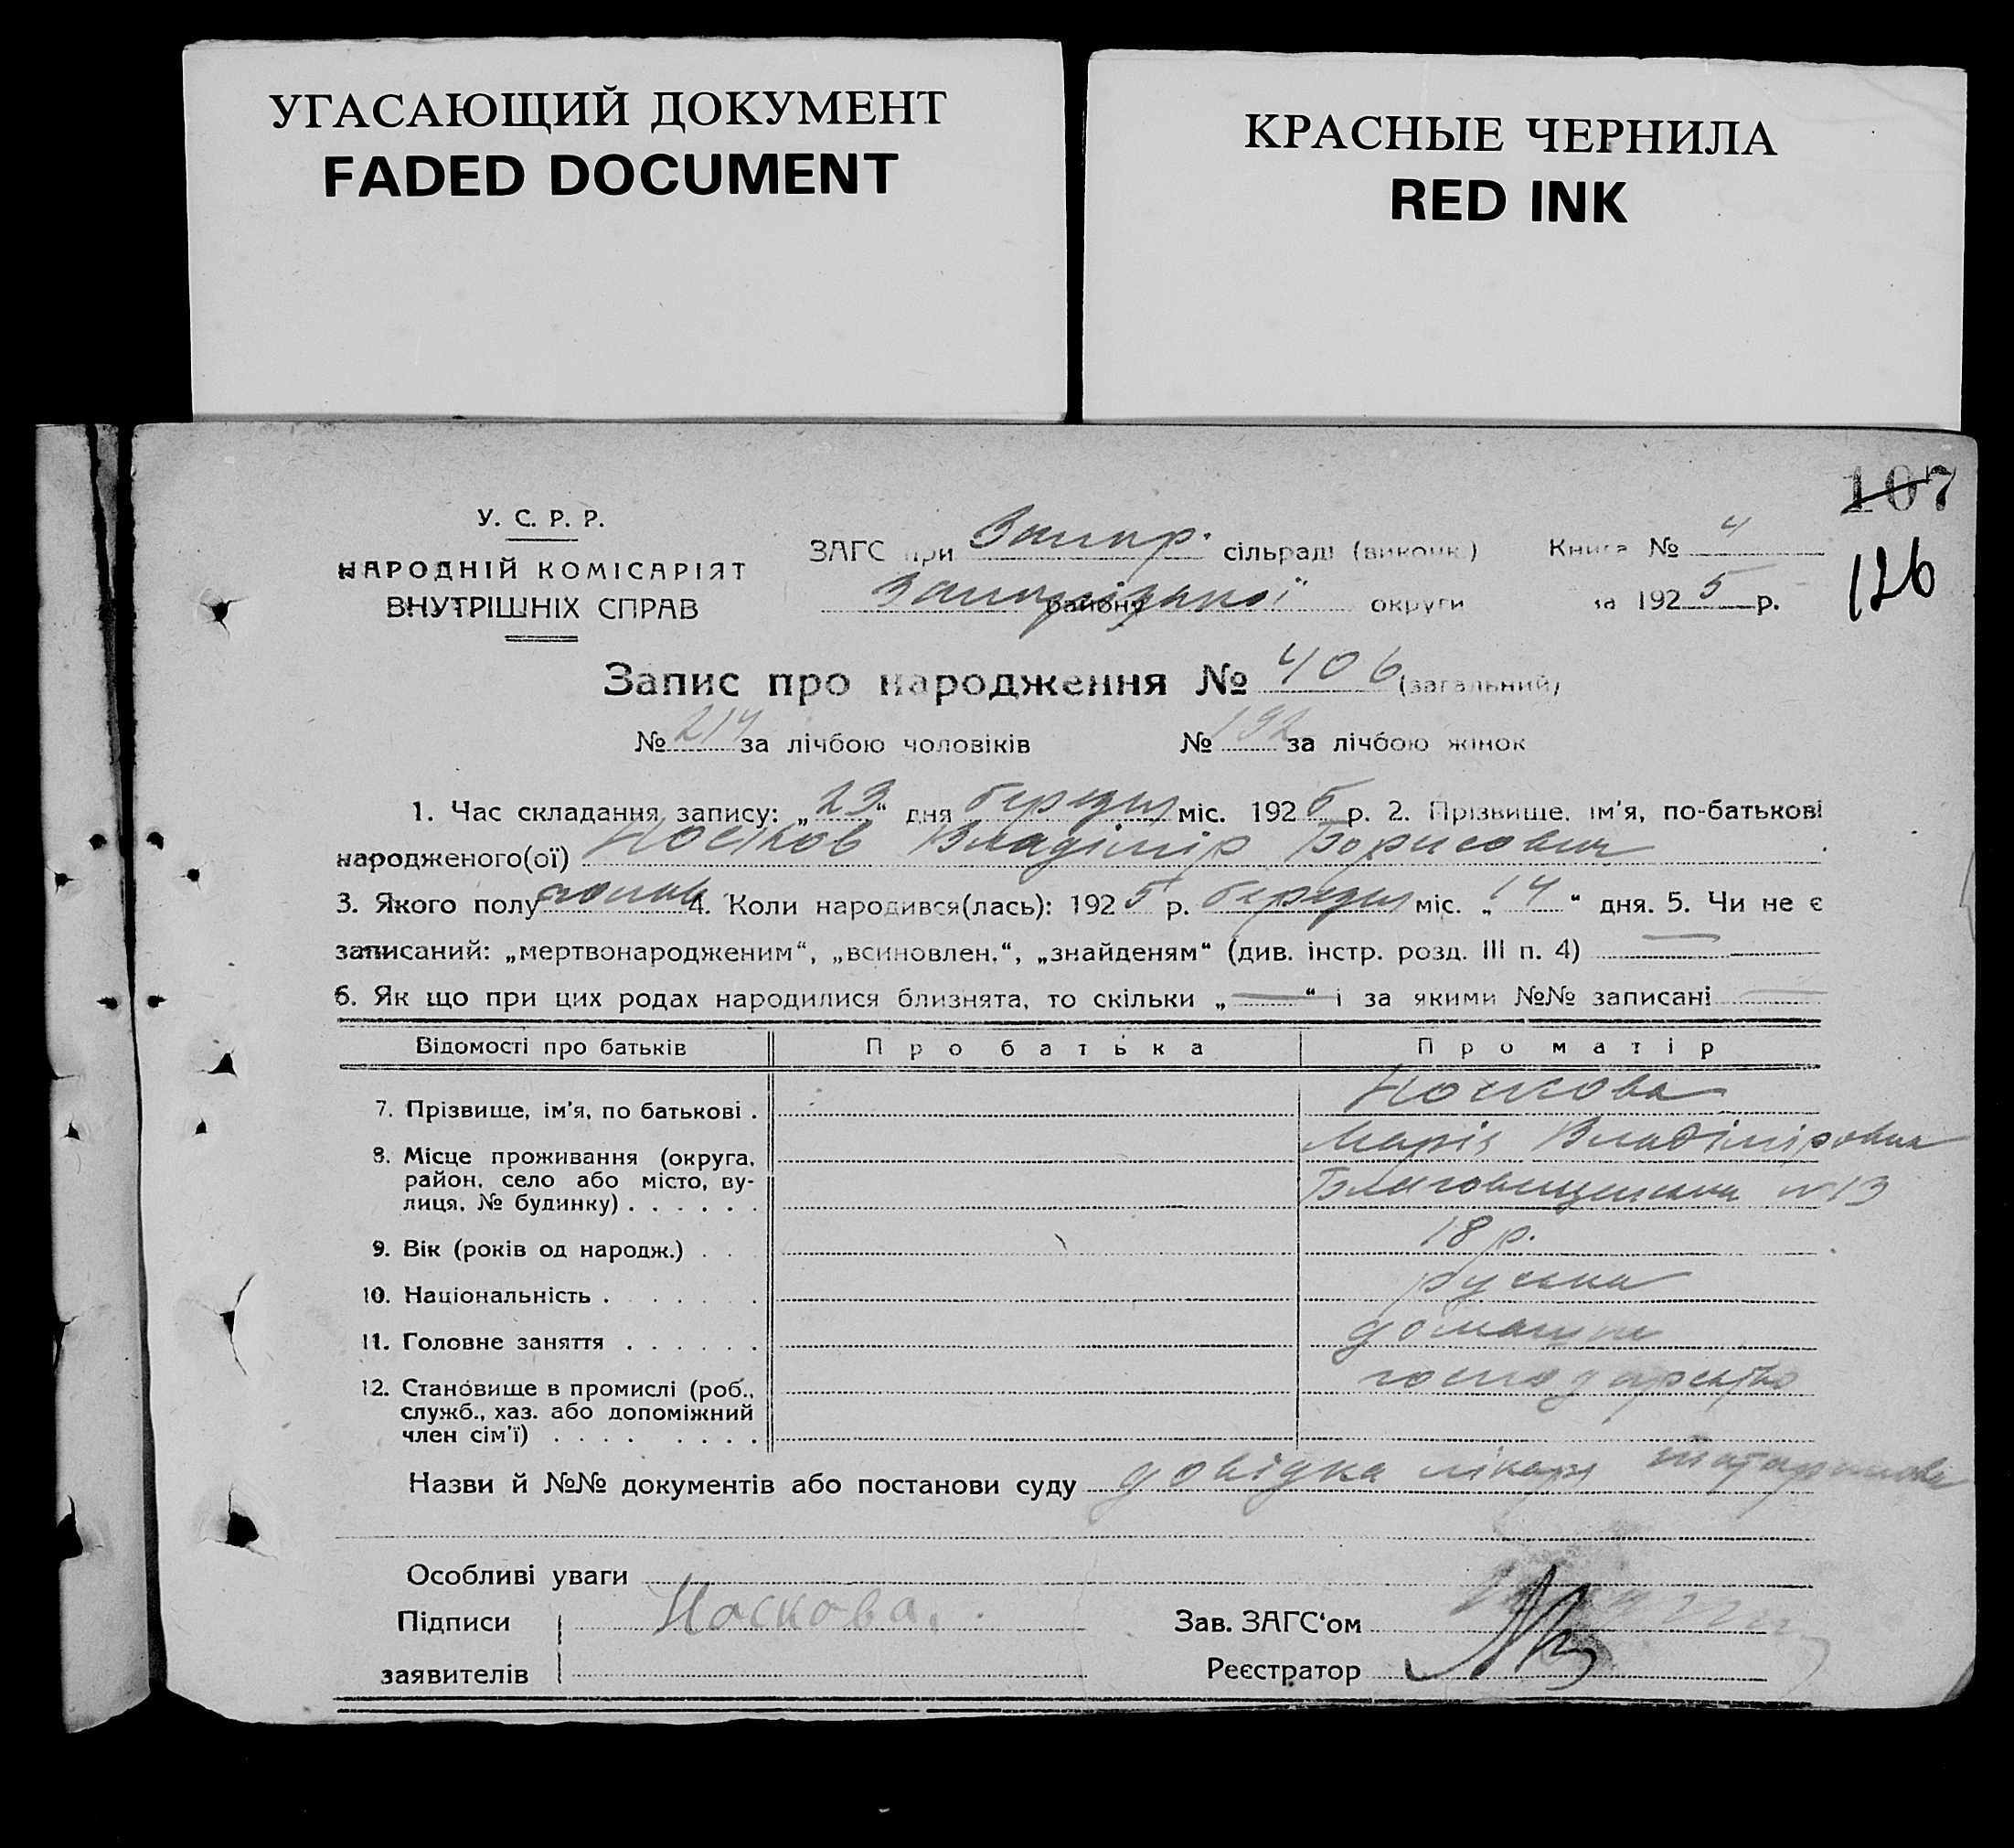 УГАСАЮЩИЙ ДОКУМЕНТ
FADED DOCUMENT
КРАСНЫЕ ЧЕРНИЛА
RED INK
107
126
У. С. Р. Р.
НАРОДНІЙ КОМІСАРІЯТ
ВНУТРІШНІХ СПРАВ
ЗАГС при Запор. сільраді (виконк.) Книга № 4
району Запорізької округи за 1925 р.
Запис про народження № 406 (загальний)
№ 214 за лічбою чоловіків № 192 за лічбою жінок
1. Час складання запису: „23“ дня березня міс. 1925 р. 2. Прізвище, ім'я, по-батькові
народженого(ої) Носков Владімір Борисович
3. Якого полу чолов. 4. Коли народився(лась): 1925 р. березня міс. „14“ дня. 5. Чи не є
записаний: „мертвонародженим“, „всиновлен.“, „знайденям“ (див. інстр. розд. III п. 4) —
6. Як що при цих родах народилися близнята, то скільки „—“ і за якими №№ записані —
Відомості про батьків Про батька Про матір
7. Прізвище, ім'я, по батькові . Носкова
Марія Владіміровна
8. Місце проживання (округа,
район, село або місто, ву-
лиця, № будинку) . . . . . . Благовищенська № 13
9. Вік (років од народж.) . . 18 р.
10. Національність . . . . . . руська
11. Головне заняття . . . . . . домашнє
12. Становище в промислі (роб., господарство
служб., хаз. або допоміжний
член сім'ї) . . . . . . . .
Назви й №№ документів або постанови суду довідка лікаря
Особливі уваги
Підписи Носкова.
Зав. ЗАГС‘ом
заявителів
Реєстратор